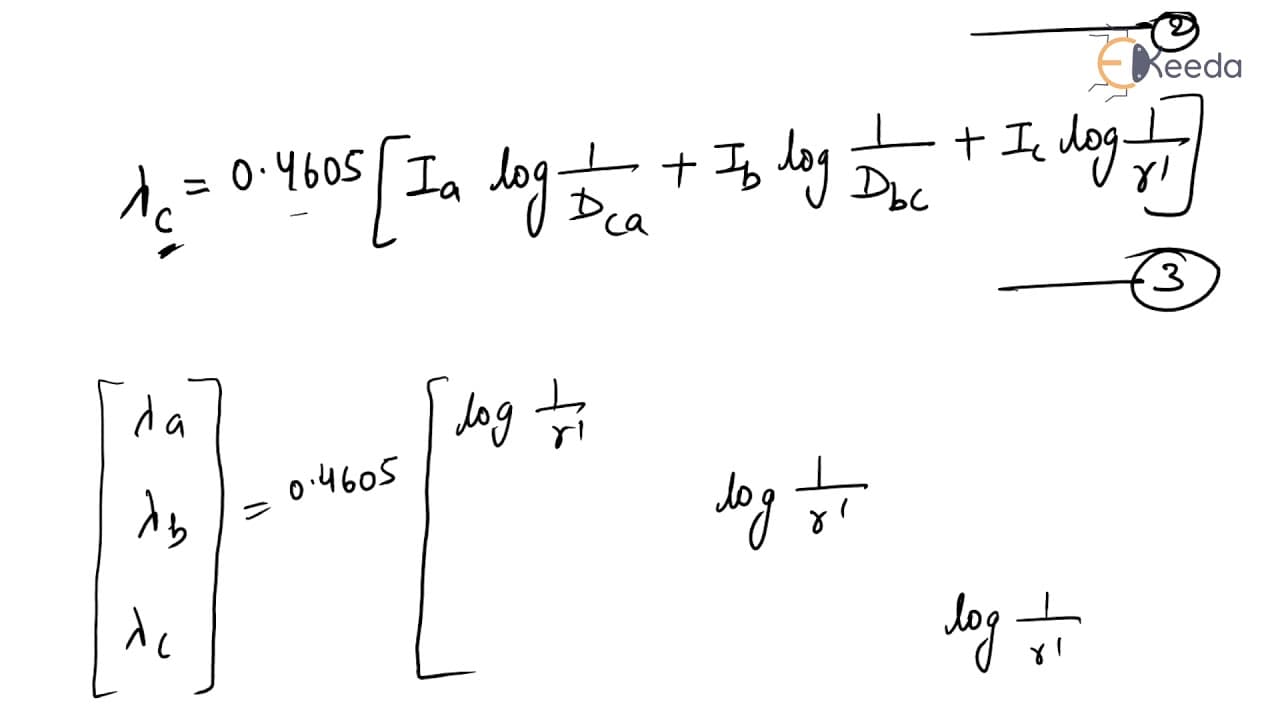 ②
EKeeda
λc = 0.4605 [ Ia log 1/Dca + Ib log 1/Dbc + Ic log 1/r' ]
③
[ λa = 0.4605 [ log 1/r'
λb log 1/r'
λc ] log 1/r'